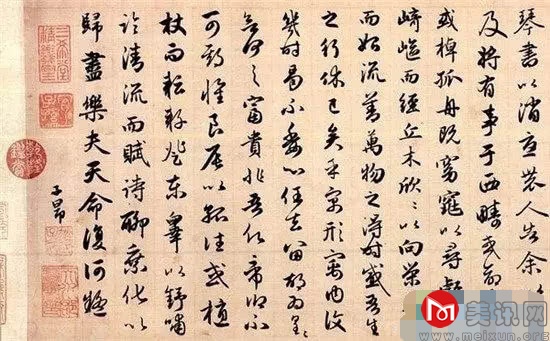 琴書以消憂農人告余以
及將有事于西疇或命
或棹孤舟既窈窕以尋壑
崎嶇而經丘木欣〻以向榮
而始流善萬物之得時感吾生
之行休已矣乎寓形宇內復
幾時曷不委心任去留胡為遑〻
欲何之富貴非吾願帝鄉不
可期懷良辰以孤往或植
杖而耘耔登東皋以舒嘯
臨清流而賦詩聊乘化以
歸盡樂夫天命復何疑
子昂
三希堂精鑑璽
宜子孫
美讯网
www.meixun.org